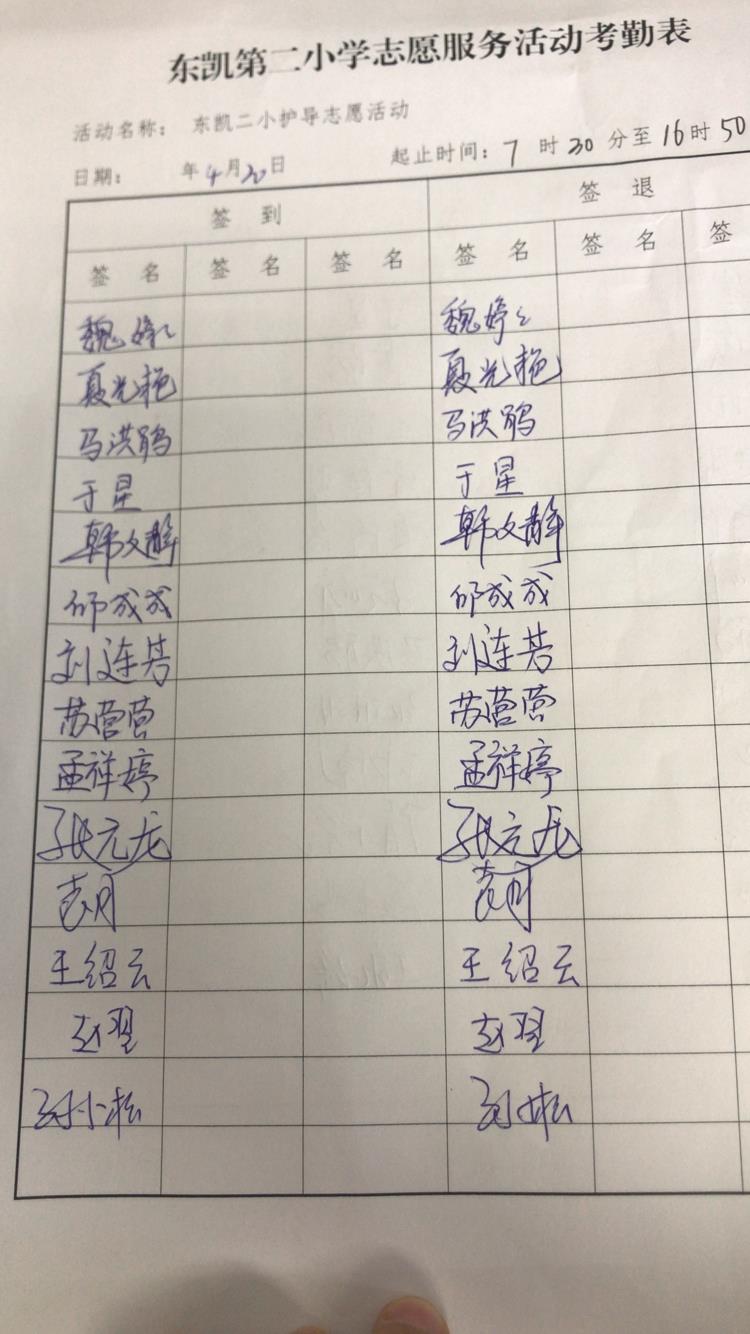 东凯第二小学志愿服务活动考勤表
活动名称： 东凯二小护导志愿活动
日期： 年4月20日 起止时间：7时30分至16时50
签到 签退
签名 签名 签名 签名 签名 签
魏婷婷 魏婷婷
夏光艳 夏光艳
马洪鹃 马洪鹃
于星 于星
韩文静 韩文静
邱成成 邱成成
刘连芳 刘连芳
苏营营 苏营营
孟祥婷 孟祥婷
张元龙 张元龙
袁月 袁月
王绍云 王绍云
赵翠 赵翠
松 松